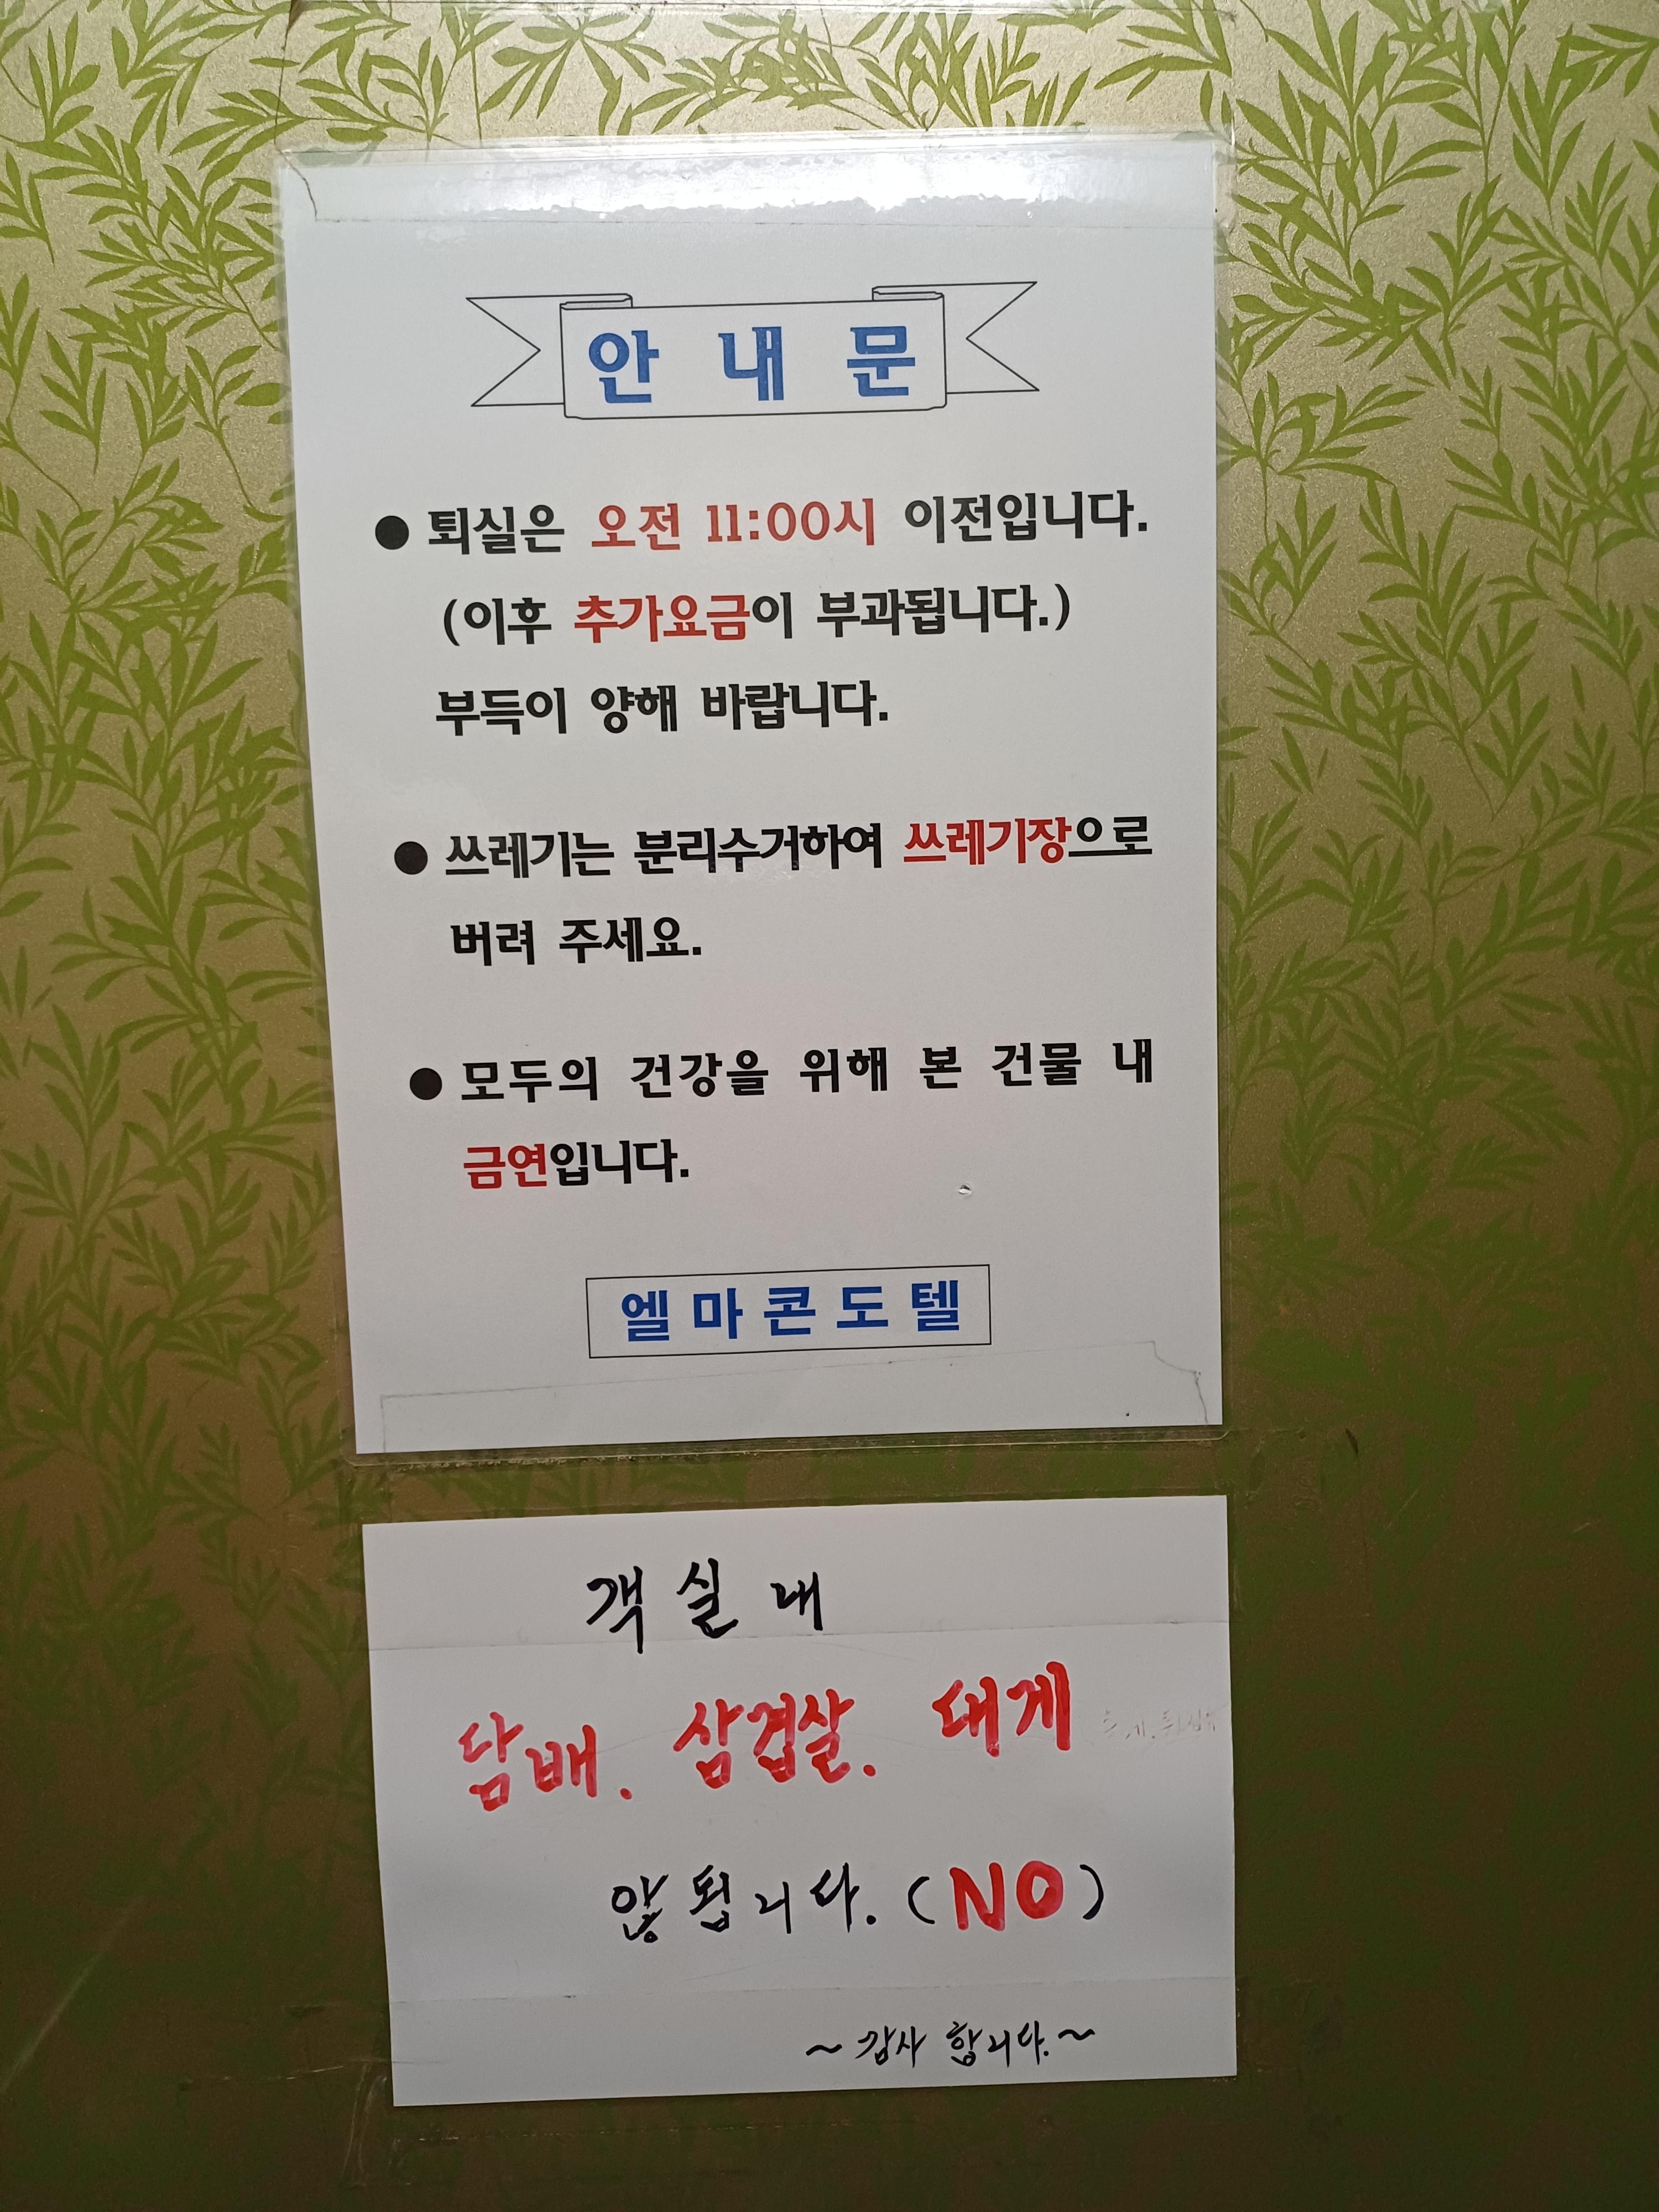 안 내 문
● 퇴실은 오전 11:00시 이전입니다.
(이후 추가요금이 부과됩니다.)
부득이 양해 바랍니다.
● 쓰레기는 분리수거하여 쓰레기장으로
버려 주세요.
● 모두의 건강을 위해 본 건물 내
금연입니다.
엘마콘도텔
객실내
담배. 삼겹살. 대게
않됩니다. (NO)
~감사 합니다.~